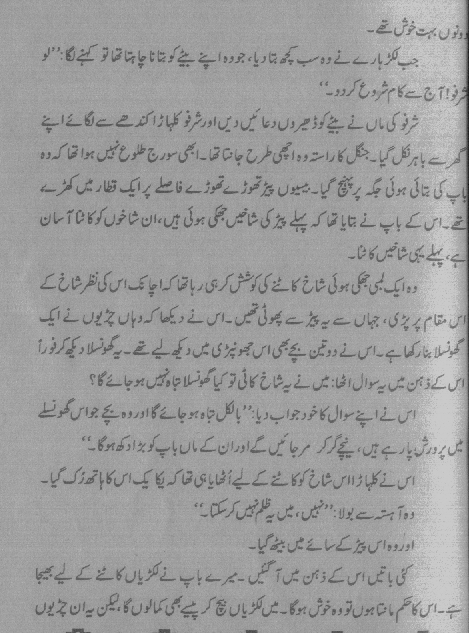 دونوں بہت خوش تھے۔
جب لکڑہارے نے وہ سب کچھ بتا دیا، جو وہ اپنے بیٹے کو بتانا چاہتا تھا تو کہنے لگا: ’’لو
شرفو! آج سے کام شروع کر دو۔‘‘
شرفو کی ماں نے بیٹے کو ڈھیروں دعائیں دیں اور شرفو کلہاڑا کندھے سے لگائے اپنے
گھر سے باہر نکل گیا۔ جنگل کا راستہ وہ اچھی طرح جانتا تھا۔ ابھی سورج طلوع نہیں ہوا تھا کہ وہ
باپ کی بتائی ہوئی جگہ پر پہنچ گیا۔ بیسیوں پیڑ تھوڑے تھوڑے فاصلے پر ایک قطار میں کھڑے
تھے۔ اس کے باپ نے بتایا تھا کہ پہلے پیڑ کی شاخیں جھکی ہوئی ہیں، ان شاخوں کو کاٹنا آسان
ہے، پہلے یہی شاخیں کاٹنا۔
وہ ایک لمبی جھکی ہوئی شاخ کاٹنے کی کوشش کر ہی رہا تھا کہ اچانک اس کی نظر شاخ کے
اس مقام پر پڑی، جہاں سے یہ پیڑ سے پھوٹی تھیں۔ اس نے دیکھا کہ وہاں چڑیوں نے ایک
گھونسلا بنا رکھا ہے۔ اس نے دو تین بچے بھی اس جھونپڑی میں دیکھ لیے تھے۔ یہ گھونسلا دیکھ کر فوراً
اس کے ذہن میں یہ سوال اٹھا: میں نے یہ شاخ کاٹی تو کیا گھونسلا تباہ نہیں ہو جائے گا؟
اس نے اپنے سوال کا خود جواب دیا: ’’بالکل تباہ ہو جائے گا اور وہ بچے جو اس گھونسلے
میں پرورش پا رہے ہیں، نیچے گر کر مر جائیں گے اور ان کے ماں باپ کو بڑا دکھ ہو گا۔‘‘
اس نے کلہاڑا اس شاخ کو کاٹنے کے لیے اُٹھایا ہی تھا کہ یکایک اس کا ہاتھ رُک گیا۔
وہ آہستہ سے بولا: ’’نہیں، میں یہ ظلم نہیں کر سکتا۔‘‘
اور وہ اس پیڑ کے سائے میں بیٹھ گیا۔
کئی باتیں اس کے ذہن میں آ گئیں۔ میرے باپ نے لکڑیاں کاٹنے کے لیے بھیجا
ہے۔ اس کا حکم مانتا ہوں تو وہ خوش ہو گا۔ میں لکڑیاں بیچ کر پیسے بھی کما لوں گا، لیکن یہ ان چڑیوں